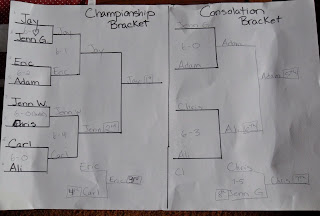 Championship
Bracket
Jay
Jenn G.
Jay
6-1
Eric
Adam
Eric
Jay
Jenn W.
Chris
Jenn W
6-4
Carl
6-0
Ali
Carl
Jenn
Eric
Carl
Eric
Consolation
Bracket
Jenn G
6-0
Adam
Adam
Chris
6-3
Ali
Ali
Adam
Chris
7-5
Jenn G
Chris